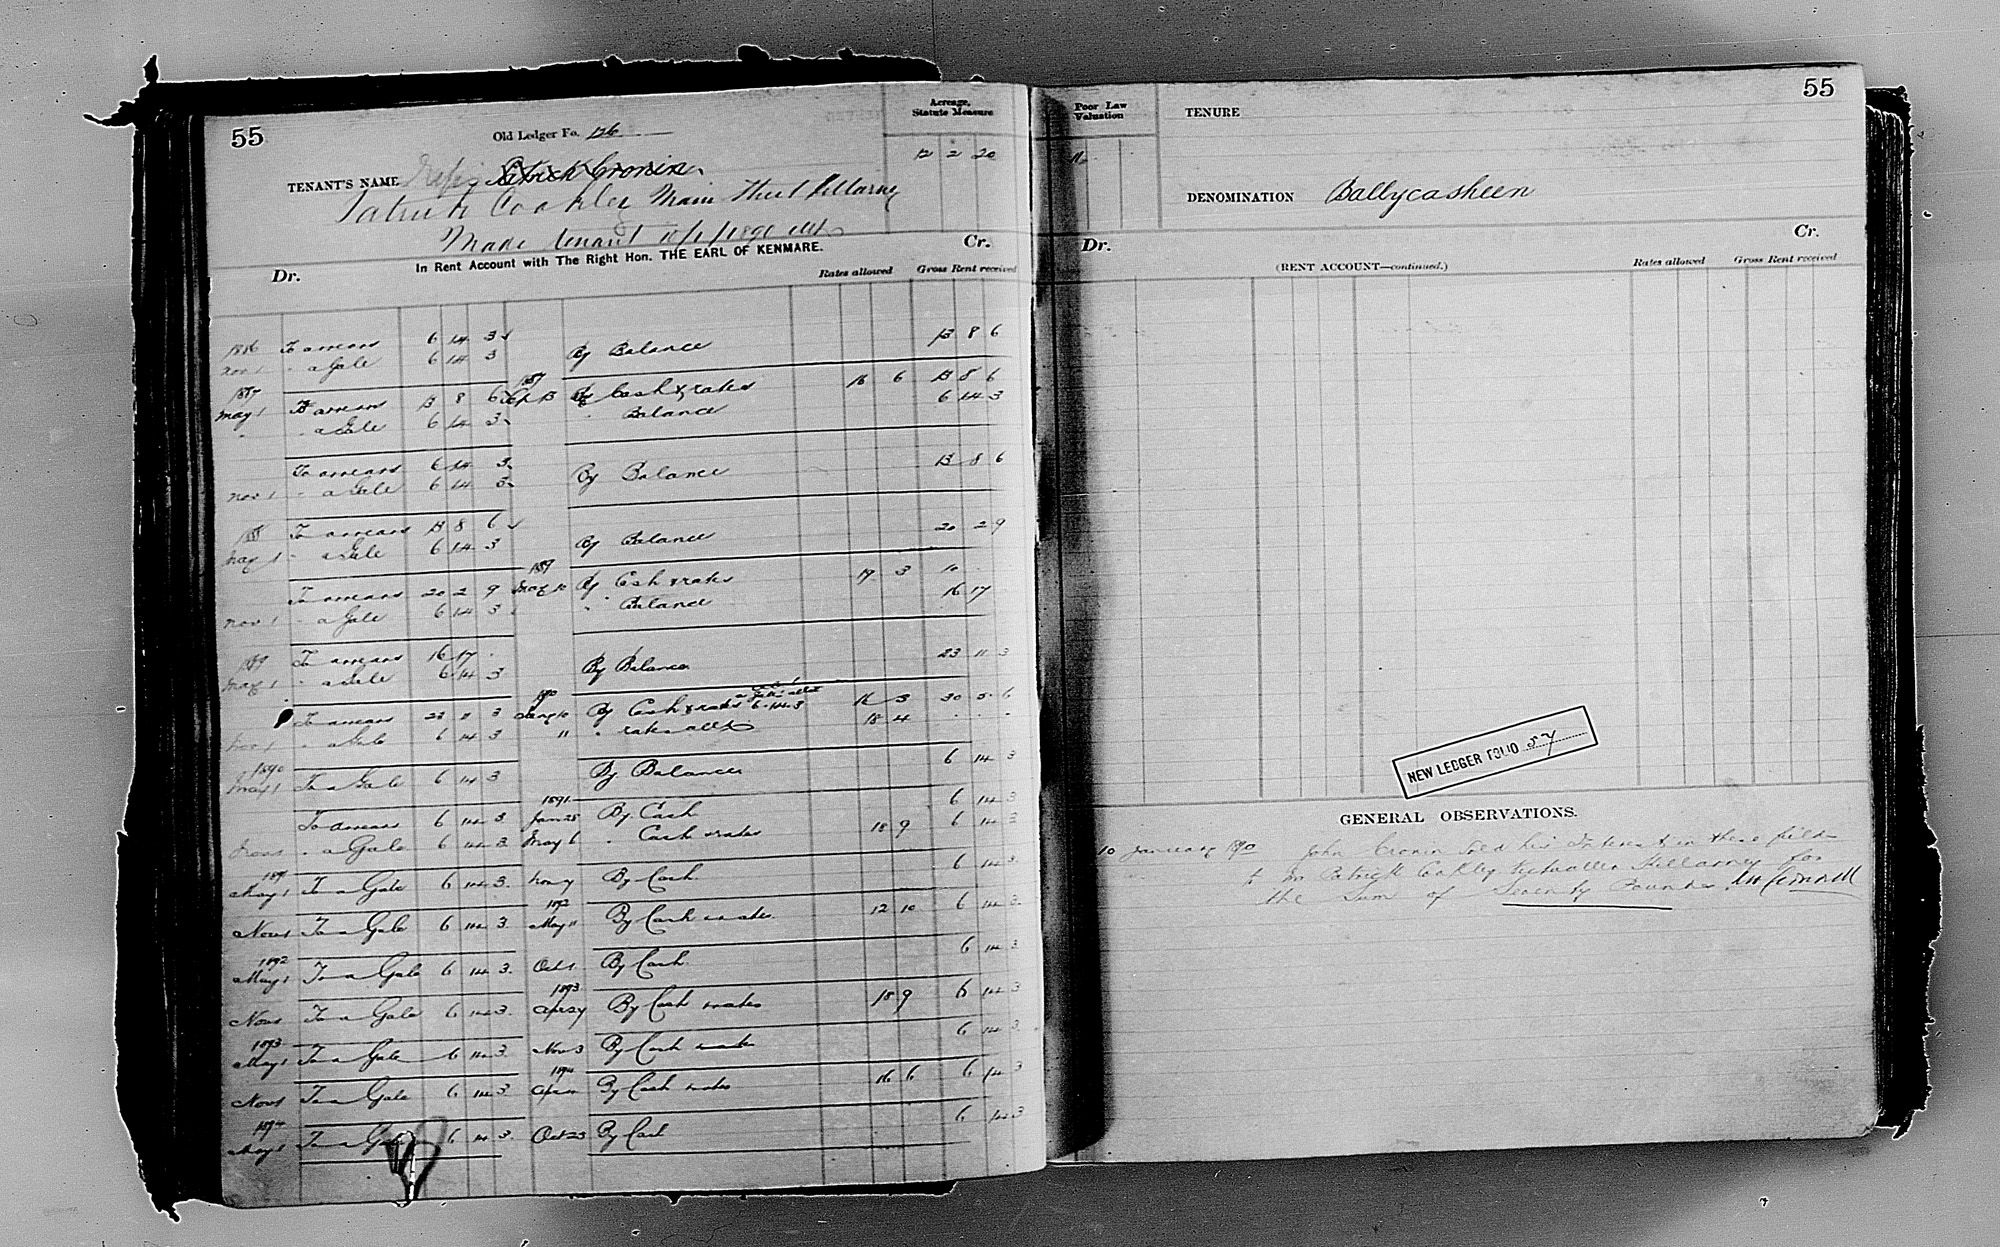 55
Old Ledger Fo. 126
Acreage,
Statute Measure
12 2 20
TENANT'S NAME Patrick Cronin
Patrick Coakley Main Street Killarney
Made tenant 10/1/1890
In Rent Account with The Right Hon. THE EARL OF KENMARE.
Dr. Cr.
Rates allowed Gross Rent received
1886 To arrears 6 14 3
Nov 1 " a Gale 6 14 3 By Balance 13 8 6
1887 1887
May 1 To arrears 13 8 6 Sep 13 By Cash & rates 16 6 13 8 6
" " a Gale 6 14 3 " Balance 6 14 3
To arrears 6 14 3
Nov 1 " a Gale 6 14 3 By Balance 13 8 6
1888 To arrears 13 8 6
May 1 " a Gale 6 14 3 By Balance 20 2 9
1889
To arrears 20 2 9 May 10 By Cash & rates 19 3 10
Nov 1 " a Gale 6 14 3 " Balance 16 17
1889 To arrears 16 17
May 1 " a Gale 6 14 3 By Balance 23 11 3
1890
To arrears 23 11 3 Jany 10 By Cash & rates 6.14.3 16 3 30 5 6
Nov 1 " a Gale 6 14 3 " " rates 18 4
1890
May 1 To a Gale 6 14 3 By Balance 6 14 3
1891
To arrears 6 14 3 Jan 28 By Cash 6 14 3
Nov 1 " a Gale 6 14 3 May 6 " Cash & rates 18 9 6 14 3
1891
May 1 To a Gale 6 14 3 By Cash 6 14 3
1892
Nov 1 To a Gale 6 14 3 May 11 By Cash & rates 12 10 6 14 3
1892
May 1 To a Gale 6 14 3 Oct 1 By Cash 6 14 3
1893
Nov 1 To a Gale 6 14 3 Apr 27 By Cash & rates 18 9 6 14 3
1893
May 1 To a Gale 6 14 3 Nov 3 By Cash & rates 6 14 3
1894
Nov 1 To a Gale 6 14 3 By Cash & rates 16 6 6 14 3
1894
May 1 To a Gale 6 14 3 Oct 23 By Cash 6 14 3
55
Poor Law
Valuation
TENURE
DENOMINATION Ballycasheen
Dr. Cr.
(RENT ACCOUNT—continued.)
Rates allowed Gross Rent received
NEW LEDGER FOLIO 57
GENERAL OBSERVATIONS.
10 January 1890 John Cronin sold his Interest in these fields
to Mr Patrick Coakley Victualler Killarney for
the Sum of Seventy Pounds